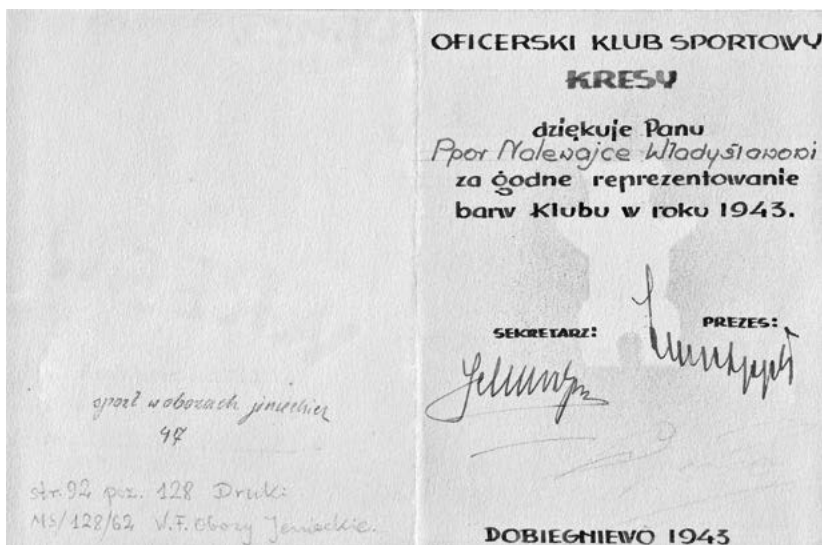 sport w obozach jenieckich
47
str. 92 poz. 128 Druki
MS/128/62 W.F. Obozy Jenieckie.
OFICERSKI KLUB SPORTOWY
KRESY
dziękuje Panu
Ppor Nalewajce Władysławowi
za godne reprezentowanie
barw Klubu w roku 1943.
SEKRETARZ:
PREZES:
DOBIEGNIEWO 1943